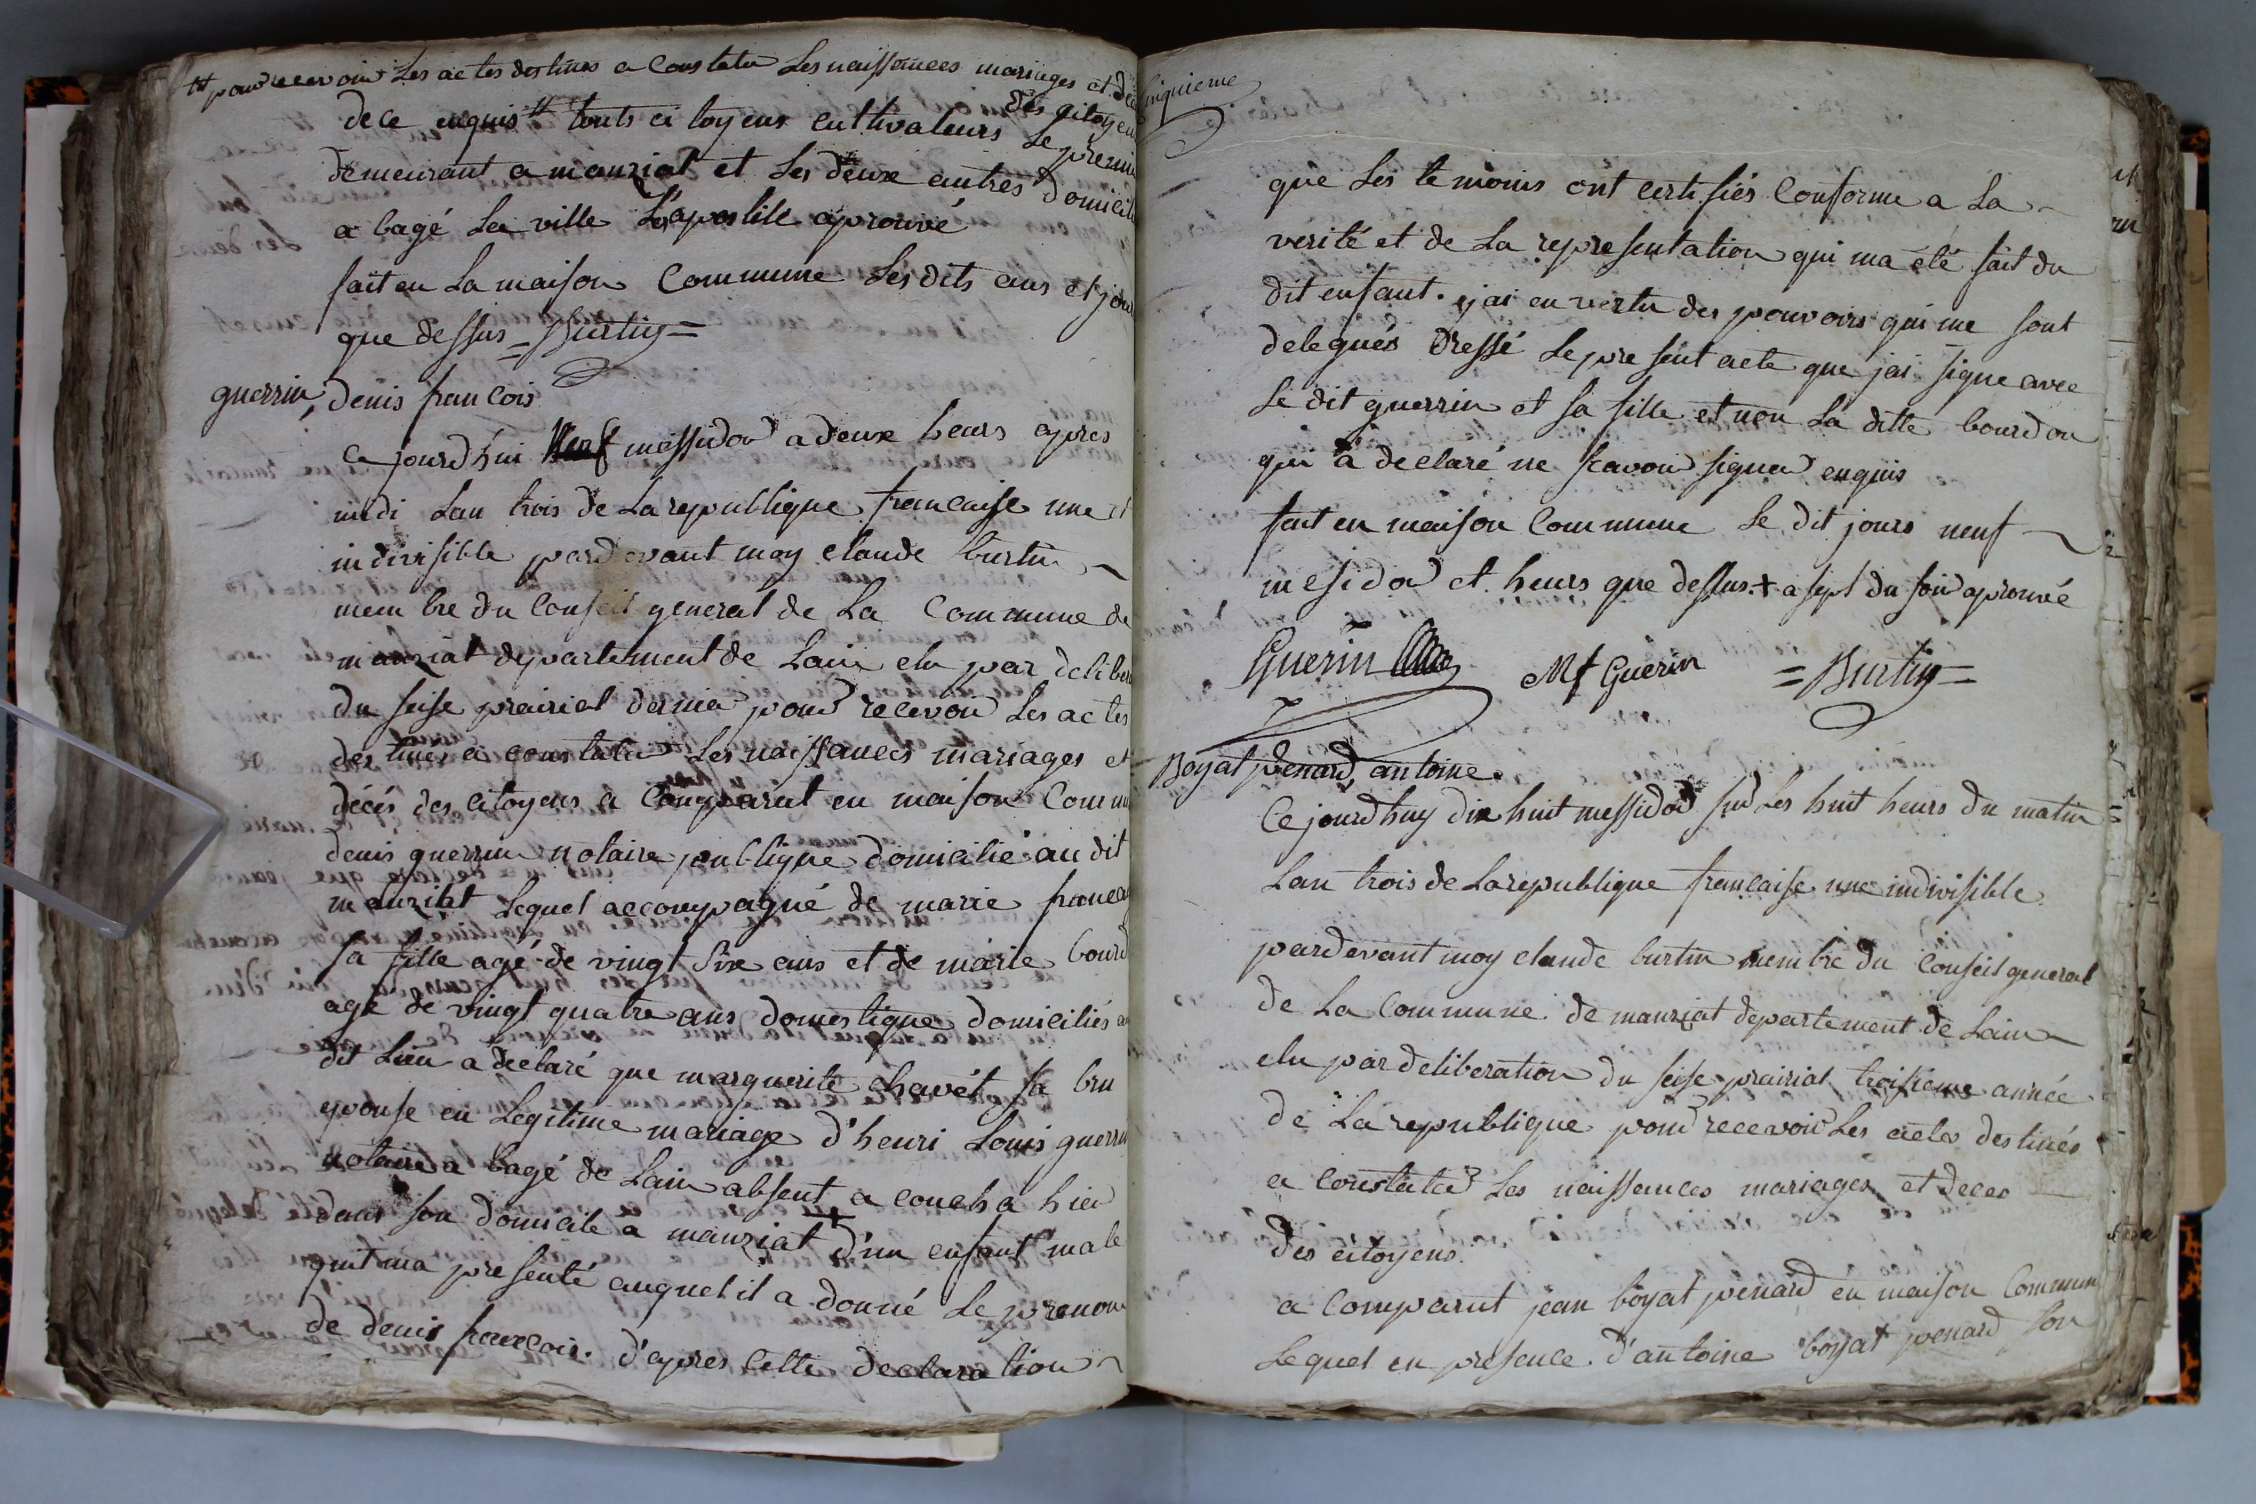 tt pour recevoir Les actes destinés a Constater Les naissances mariages et
des citoyens
de ce enquis tt touts citoyens cultivateurs Le premier
demeurant a manziat et Les deux autres domicili
a bagé La ville L'apostille aprouvé
fait en La maison Commune Les dits ans et jour
que dessus = Burtin =
guerrin, denis francois
Ce jourd'hui neuf messidor a deux heurs apres
midi Lan trois de La republique francaise une et
indivisible pardevant moy claude burtin
membre du Conseil general de La Commune de
manziat departement de Lain elu par delibera
du seise prairial dernier pour recevoir Les actes
destinés a constater Les naissances mariages et
décés des citoyens a Comparut en maison Commu
denis guerrin notaire publique domicilié au dit
manziat Lequel accompagné de marie francoi
sa fille agé de vingt six ans et de marie bourd
agé de vingt quatre ans domestique domiciliés au
dit Lieu a declaré que marguerite chevét sa bru
epouse en Legitime mariage d'henri Louis guerrin
notaire a bagé de Lain absent a coucha hier
dans son domicile a manziat + d'un enfant male
quil ma presenté auquel il a donné Le prenom
de denis francois. d'apres Cette declaration
cinquieme
que Les temoins ont certifiés Conforme a La
verité et de La representation qui ma été fait du
dit enfant. jai en vertu des pouvoirs qui me sont
delegués dressé Le present acte que jai signe avec
Le dit guerrin et sa fille et non La ditte bourdon
qui a declaré ne scavoir signer enquis
fait en maison Commune Le dit jours neuf
mesidor et heurs que dessus. + a sept du soir aprouvé
Guerin Mf Guerin = Burtin =
Boyat penard, antoine.
Ce jourdhuy dix huit messidor sur Les huit heurs du matin
Lan trois de La republique francaise une indivisible
pardevant moy claude burtin membre du Conseil general
de La Commune de manziat departement de Lain
elu par deliberation du seise prairial troisieme année
de La republique pour recevoir Les actes destinés
a Constater Les naissances mariages et deces
des citoyens.
a Comparut jean boyat penard en maison Commun
Lequel en presence. d'antoine boyat penard son